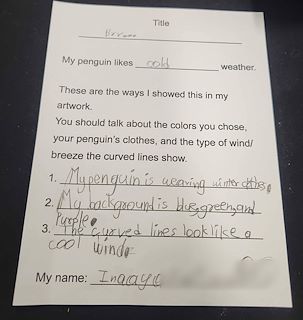 Title
My penguin likes cold weather.
These are the ways I showed this in my
artwork.
You should talk about the colors you chose,
your penguin's clothes, and the type of wind/
breeze the curved lines show.
1. My penguin is wearing winter clothes.
2. My background is blue, green, and
Purple.
3. The curved lines look like a
cool wind.
My name: Inaaya